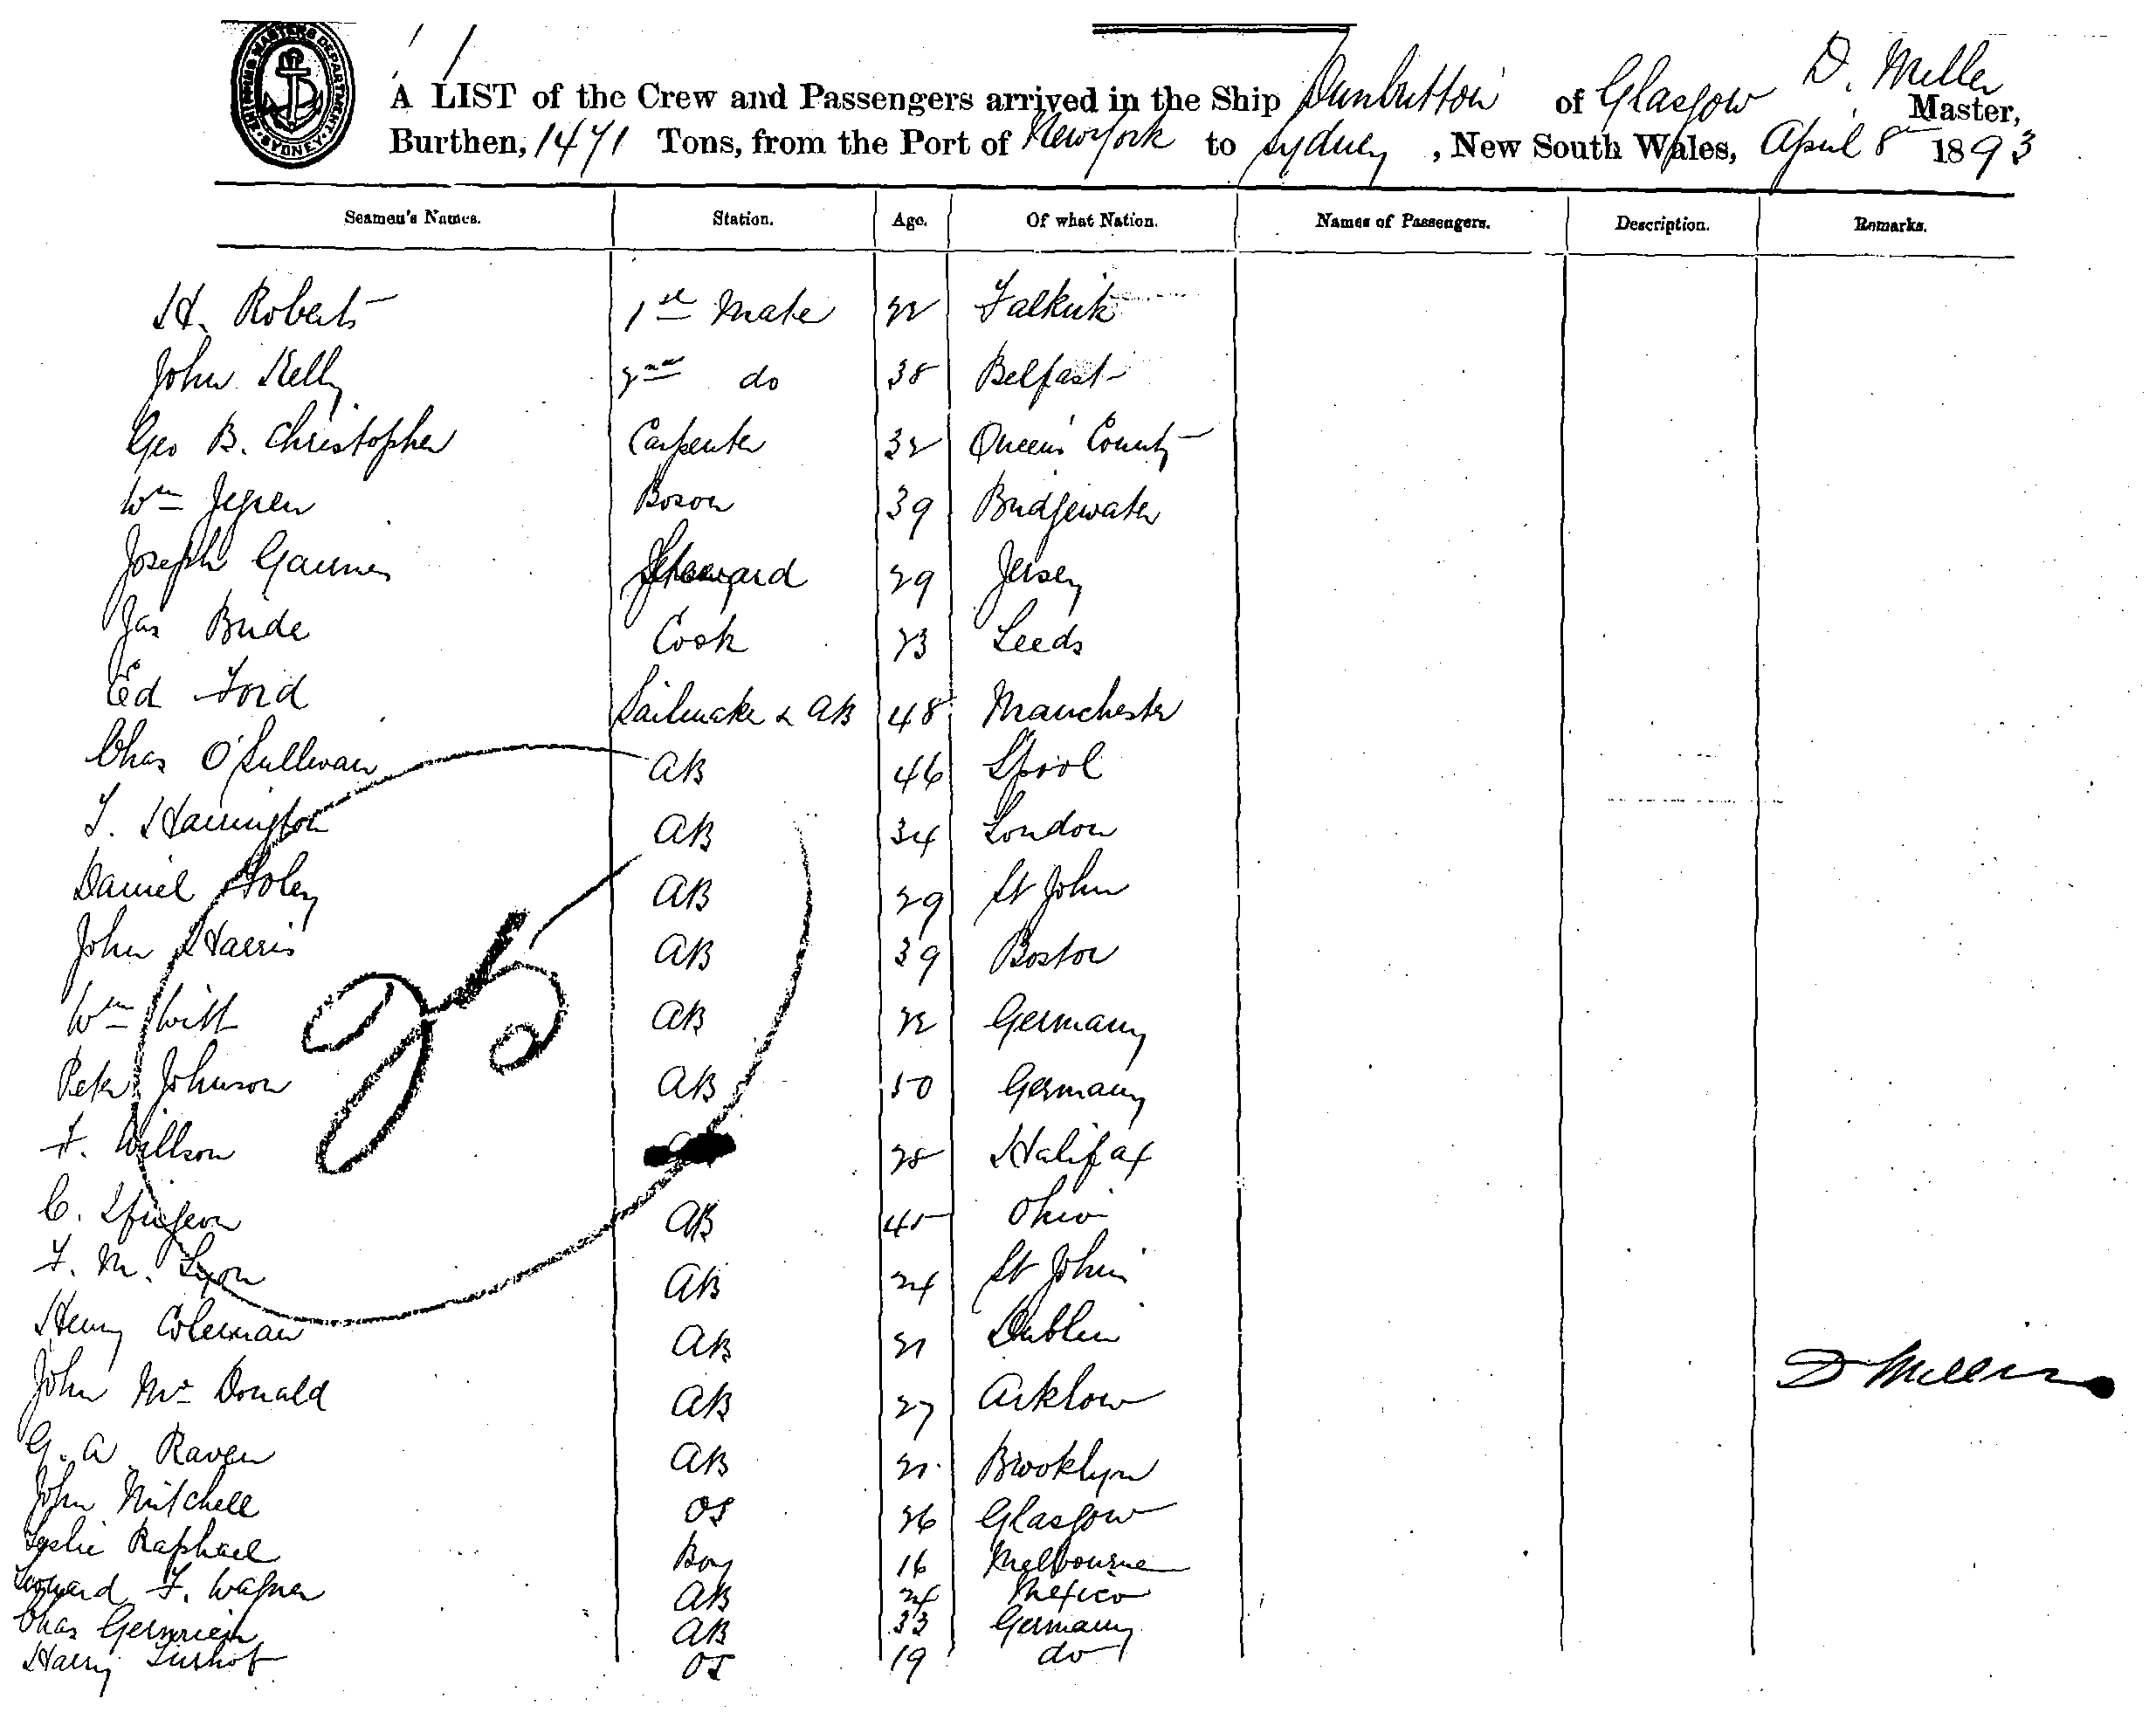 SHIPPING MASTERS DEPARTMENT SYDNEY
A LIST of the Crew and Passengers arrived in the Ship Dunbritton of Glasgow D. Miller Master,
Burthen, 1471 Tons, from the Port of New York to Sydney, New South Wales, April 8th 1893
Seamen's Names. Station. Age. Of what Nation. Names of Passengers. Description. Remarks.
H. Roberts 1st Mate Falkirk
John Kelly 2nd do 38 Belfast
Geo B. Christopher Carpenter 32 Queen's County
Wm Boson 39 Bridgewater
Joseph Steward 29 Jersey
Jas Bride Cook 23 Leeds
Ed Ford Sailmaker & AB 48 Manchester
Chas O'Sullivan AB 46 L'pool
T. Harrington AB 34 London
Daniel Foley AB 29 St John
John Harris AB 39 Boston
Wm Witt AB Germany
Peter Johnson AB 50 Germany
F. Willson 28 Halifax
C. AB 45 Ohio
F. M. Lyon AB 24 St John
Henry Coleman AB 21 Dublin
John McDonald AB 27 Arklow
G. A. Raven AB 21 Brooklyn
John Mitchell OS 26 Glasgow
Leslie Raphael Boy 16 Melbourne
Leonard F. Wagner AB 24 Mexico
Chas AB 33 Germany
Harry OS 19 do
25
D Miller